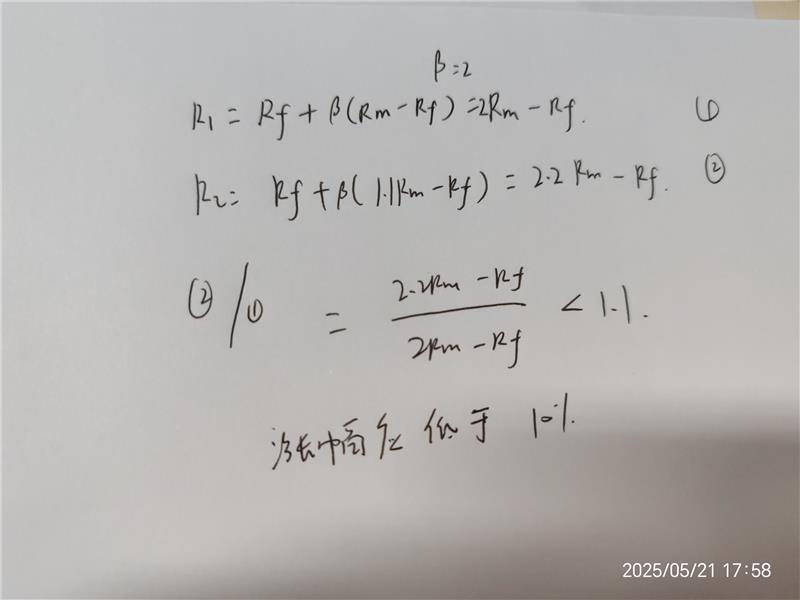 β=2
R1 = Rf + β(Rm - Rf) = 2Rm - Rf. ①
R2 = Rf + β(1.1Rm - Rf) = 2.2Rm - Rf. ②
②/① = (2.2Rm - Rf)/(2Rm - Rf) < 1.1.
涨幅应低于10%.
2025/05/21 17:58